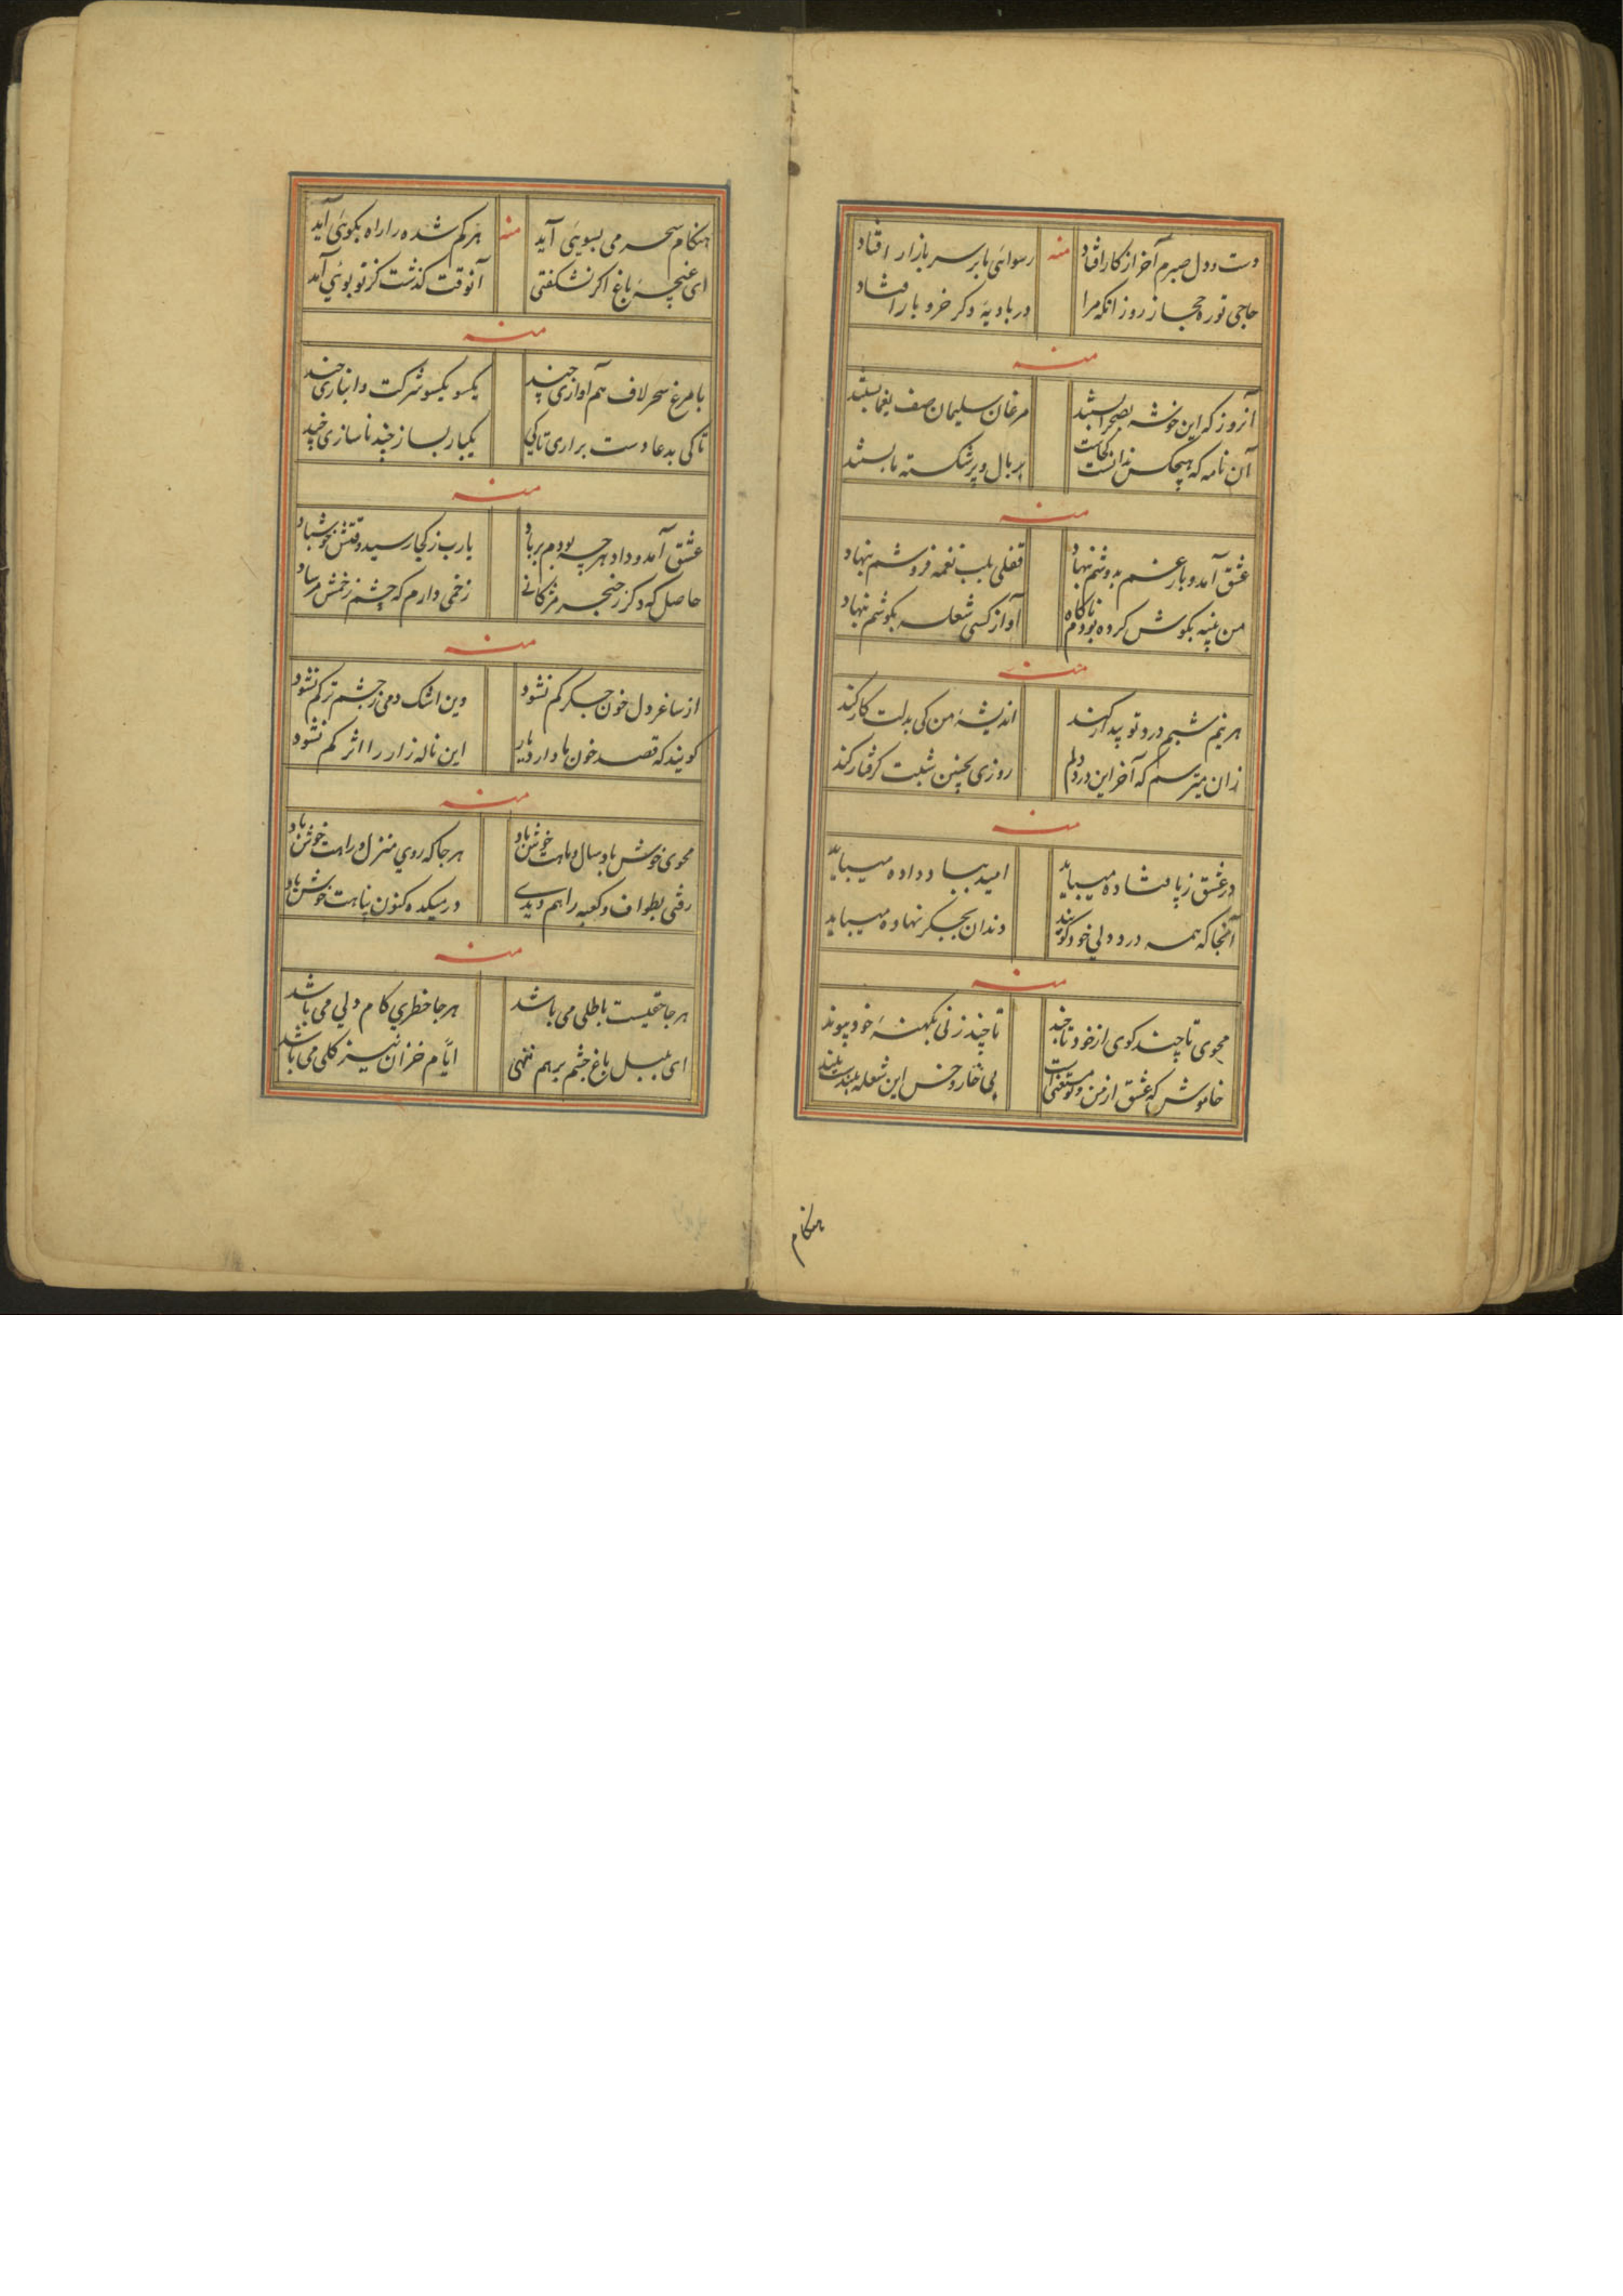 دست و دل صبرم آخر از کار افتاد
منه
رسوائی ما بر سر بازار افتاد
حاجی تو ره حجاز رو زانکه مرا
در بادیهٔ دکر خر و بار افتاد
منه
آنروز که این خوشه بصحرا بستند
مرغان سلیمان صف یغما بستند
آن نامه که هیچکس ندانست کجاست
بر بال و پر شکسته ما بستند
منه
عشق آمد و بار غم بدوشم بنهاد
قفلی بلب نغمه فروشم بنهاد
من پنبه بکوش کرده بودم ناکاه
آواز کسی شعله بکوشم بنهاد
منه
هر نیم شبم درد تو بیدار کند
اندیشهٔ من کی بدلت کار کند
زان میترسم که آخر این درد دلم
روزی بچنین شبت کرفتار کند
منه
در عشق ز پا فتاده میباید
امید بباد داده میباید
آنجا که همه درد دلی خود کویند
دندان بجکر نهاده میباید
منه
محوی تا چند کوی از خود تا چند
تا چند زنی بکهنهٔ خود پیوند
خاموش که عشق از من و تو مستغنی است
بی خار و خس این شعله بلندست بلند
هنکام
هنکام سحر می بسویی آید
منه
هر کم شده را راه بکوئی آید
ای غنچهٔ باغ اکر نشکفتی
آنوقت کذشت کز تو بوئی آید
منه
با مرغ سحر لاف هم آوازی چند
یکسو یکسو شرکت و انبازی چند
تا کی بدعا دست براری تا کی
یکبار بساز چند ناسازی چند
منه
عشق آمد و داد هر چه بودم بر باد
یا رب ز کجا رسید وقتش خوشباد
حاصل که دکر ز خنجر مژکانی
زخمی دارم که چشم زخمش مرساد
منه
از ساغر دل خون جکر کم نشود
وین اشک دمی ز چشم تر کم نشود
کویند که قصد خون ما دارد یار
این ناله زار را اثر کم نشود
منه
محوی خوش باد سال و ماهت خوش باد
هر جا که روی منزل و راهت خوش باد
رفتی بطواف و کعبه را هم دیدی
در میکده کنون پناهت خوش باد
منه
هر جا حقیست باطلی می باشد
هر جا خطری کام دلی می باشد
ای بلبل باغ چشم بر هم ننهی
ایام خزان نیز کلی می باشد